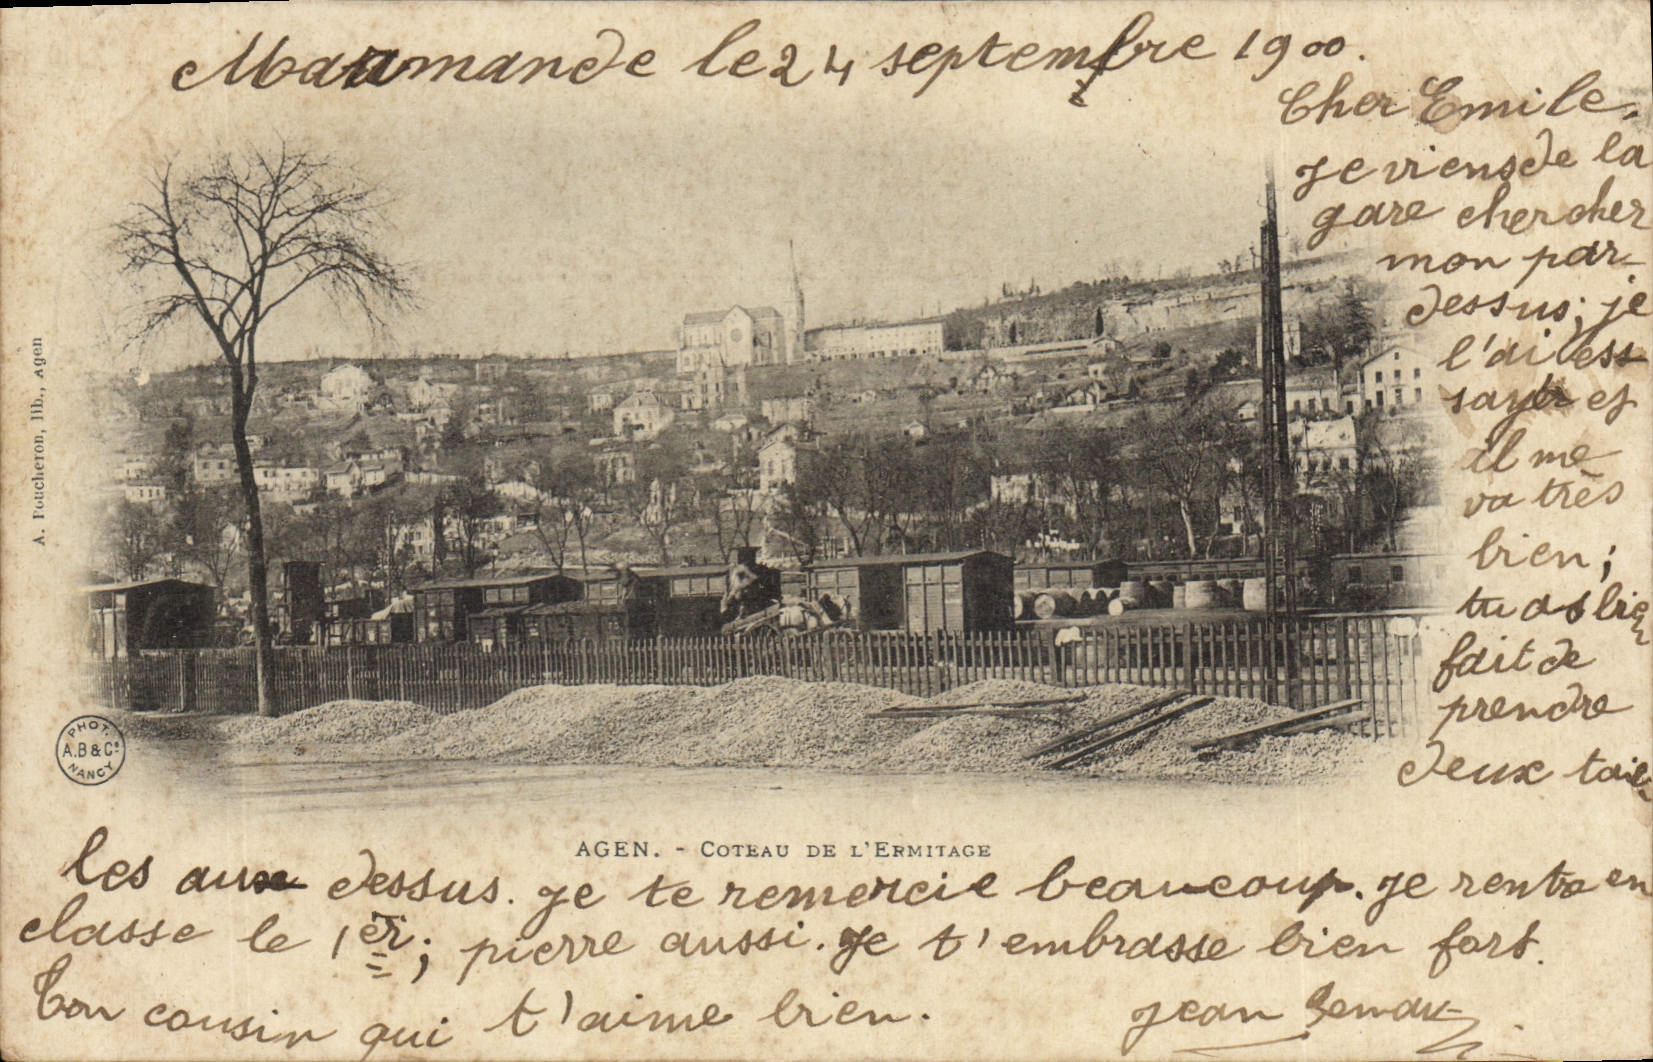 Marmande le 24 septembre 1900.
Cher Emile,
je viens de la
gare chercher
mon par-
dessus; je
l'ai ess
sayer et
il me
va très
bien;
tu as bien
fait de
prendre
deux tail-
les au dessus. je te remercie beaucoup. je rentre en
classe le 1er; pierre aussi. Je t'embrasse bien fort.
Ton cousin qui t'aime bien.
jean
A. Poucheron, lib., Agen
PHOT.
A.B & Cie
NANCY
AGEN. - COTEAU DE L'ERMITAGE